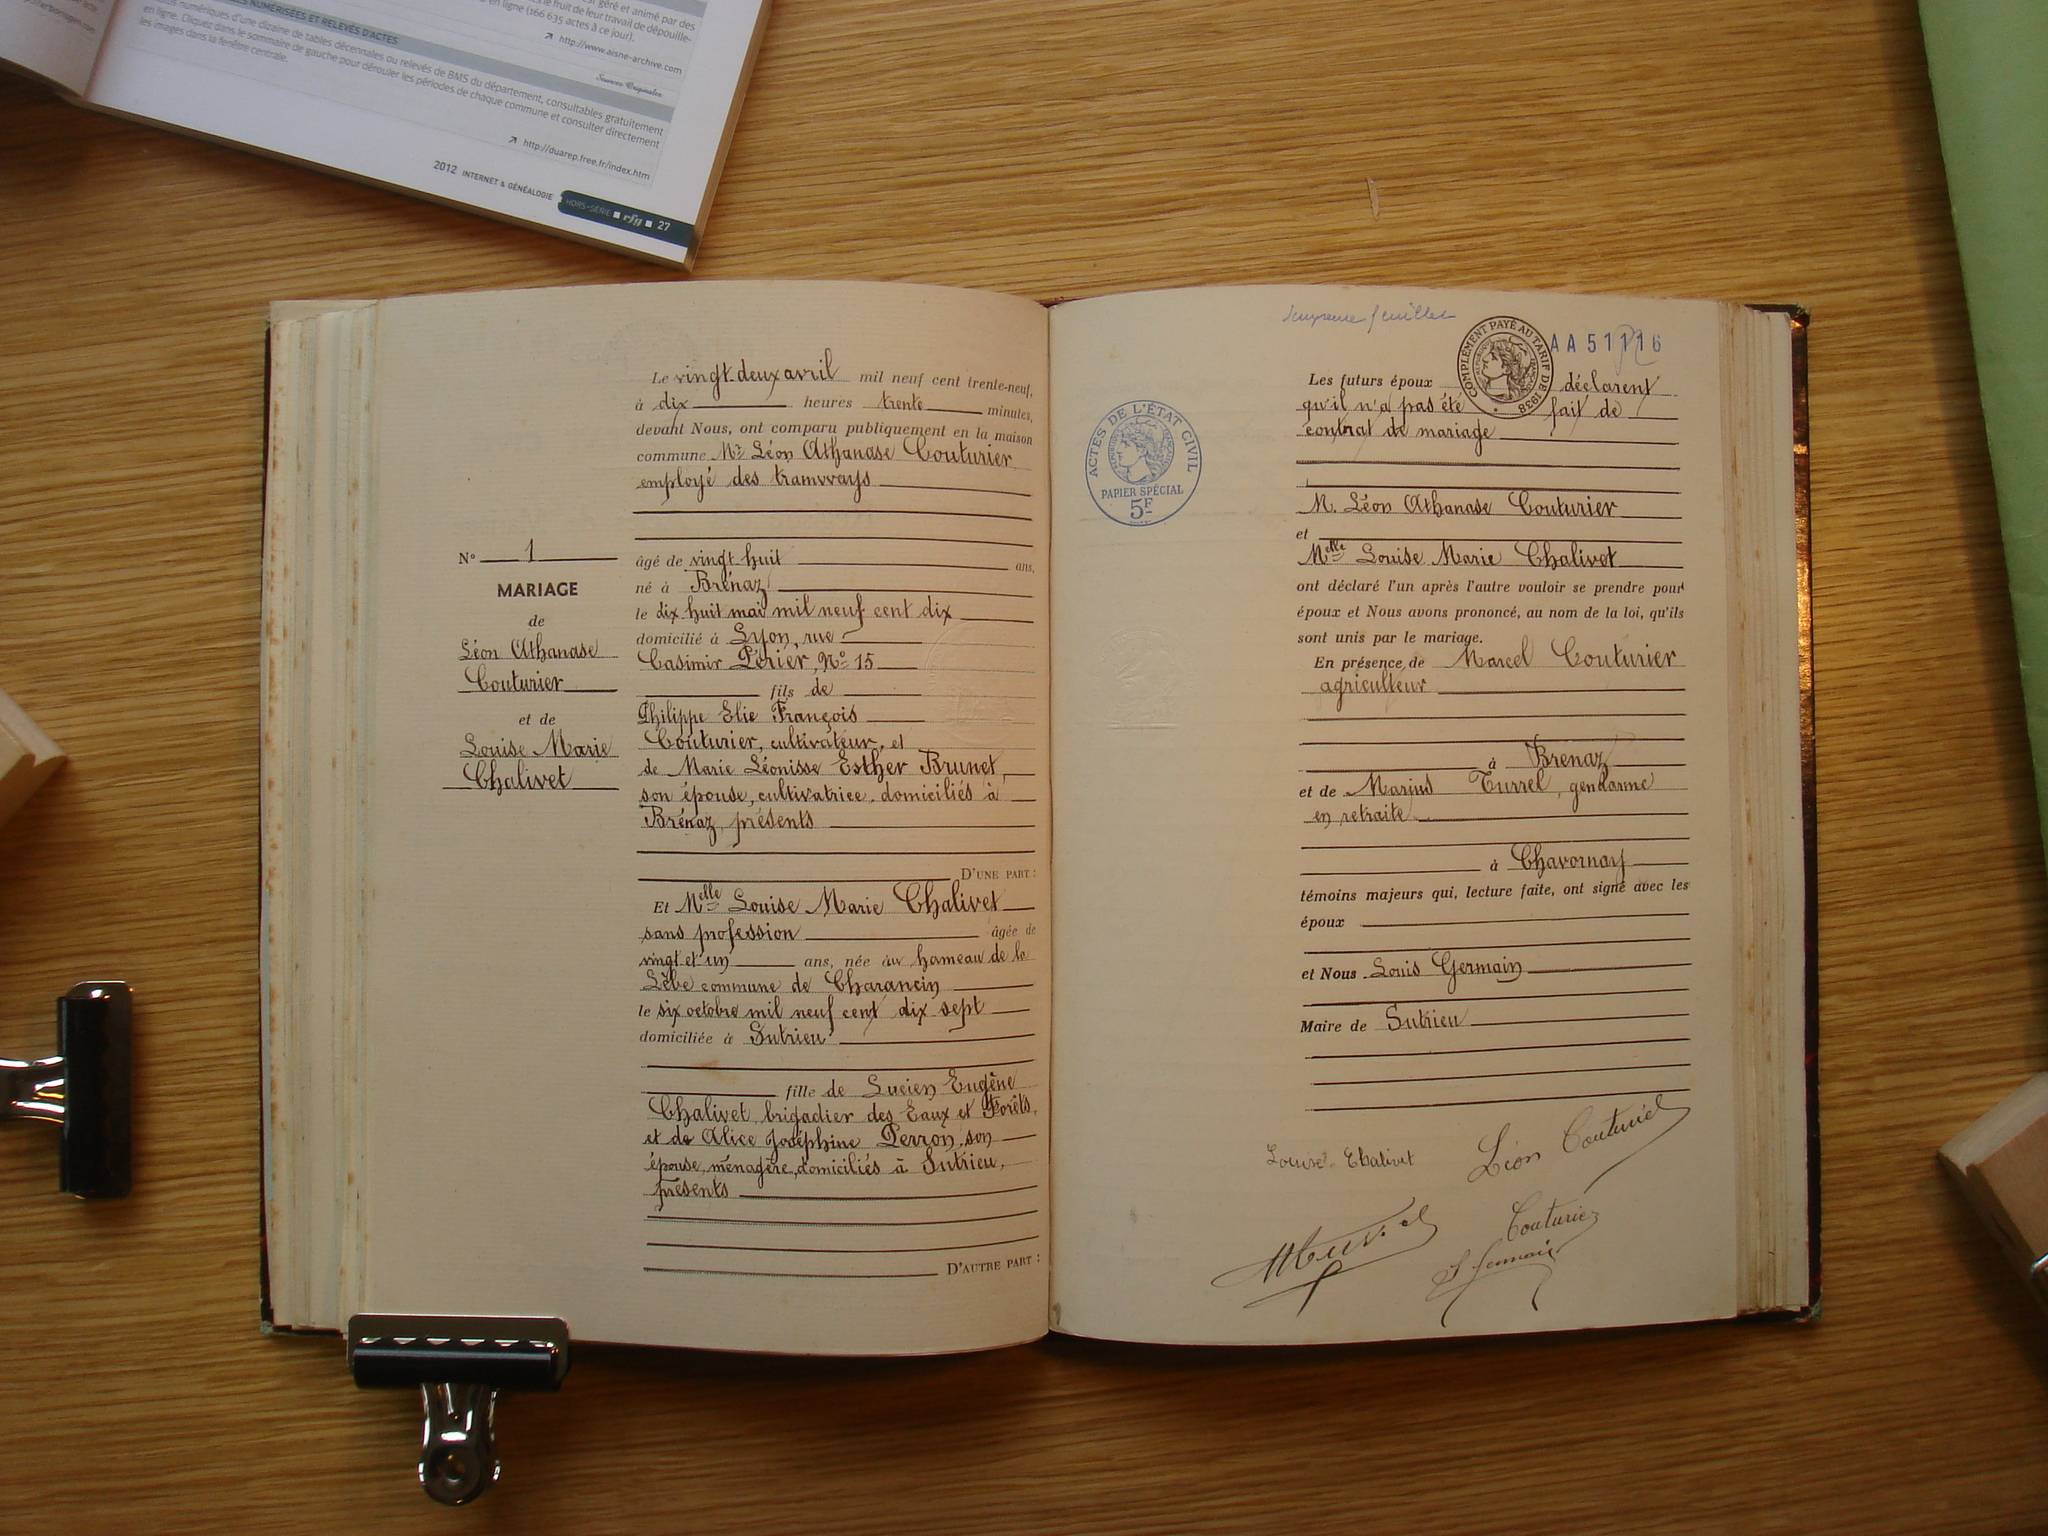 géré et animé par des
le fruit de leur travail de dépouille-
en ligne (166 635 actes à ce jour).
http://www.aisne-archive.com
Sources Originales
NUMÉRISÉES ET RELEVÉS D'ACTES
numériques d'une dizaine de tables décennales ou relevés de BMS du département, consultables gratuitement
en ligne. Cliquez dans le sommaire de gauche pour dérouler les périodes de chaque commune et consulter directement
les images dans la fenêtre centrale.
http://duarep.free.fr/index.htm
2012 INTERNET & GÉNÉALOGIE HORS-SÉRIE rfg 27
Le vingt-deux avril mil neuf cent trente-neuf,
à dix heures trente minutes,
devant Nous, ont comparu publiquement en la maison
commune Mr Léon Athanase Couturier
employé des tramways
âgé de vingt-huit ans,
né à Brénaz
le dix huit mai mil neuf cent dix
domicilié à Lyon, rue
Casimir Périer, No 15
fils de
Philippe Elie François
Couturier, cultivateur, et
de Marie Léonisse Esther Brunet,
son épouse, cultivatrice, domiciliés à
Brénaz, présents
D'UNE PART :
Et Melle Louise Marie Chalivet
sans profession âgée de
vingt et un ans, née au hameau de la
Lèbe commune de Charancin
le six octobre mil neuf cent dix sept
domiciliée à Sutrieu
fille de Lucien Eugène
Chalivet, brigadier des Eaux et Forêts,
et de Alice Joséphine Perron, son
épouse, ménagère, domiciliés à Sutrieu,
présents
D'AUTRE PART :
No 1
MARIAGE
de
Léon Athanase
Couturier
et de
Louise Marie
Chalivet
feuillet
COMPLÉMENT PAYÉ AU TARIF DE 1938
AA 51116
ACTES DE L'ÉTAT CIVIL
PAPIER SPÉCIAL
5F
Les futurs époux déclarent
qu'il n'a pas été fait de
contrat de mariage
M. Léon Athanase Couturier
et
Melle Louise Marie Chalivet
ont déclaré l'un après l'autre vouloir se prendre pour
époux et Nous avons prononcé, au nom de la loi, qu'ils
sont unis par le mariage.
En présence de Marcel Couturier
agriculteur
à Brénaz
et de Marius Turrel, gendarme
en retraite
à Chavornay
témoins majeurs qui, lecture faite, ont signé avec les
époux
et Nous Louis Germain
Maire de Sutrieu
Louise Chalivet
Léon Couturier
Couturier
L Germain